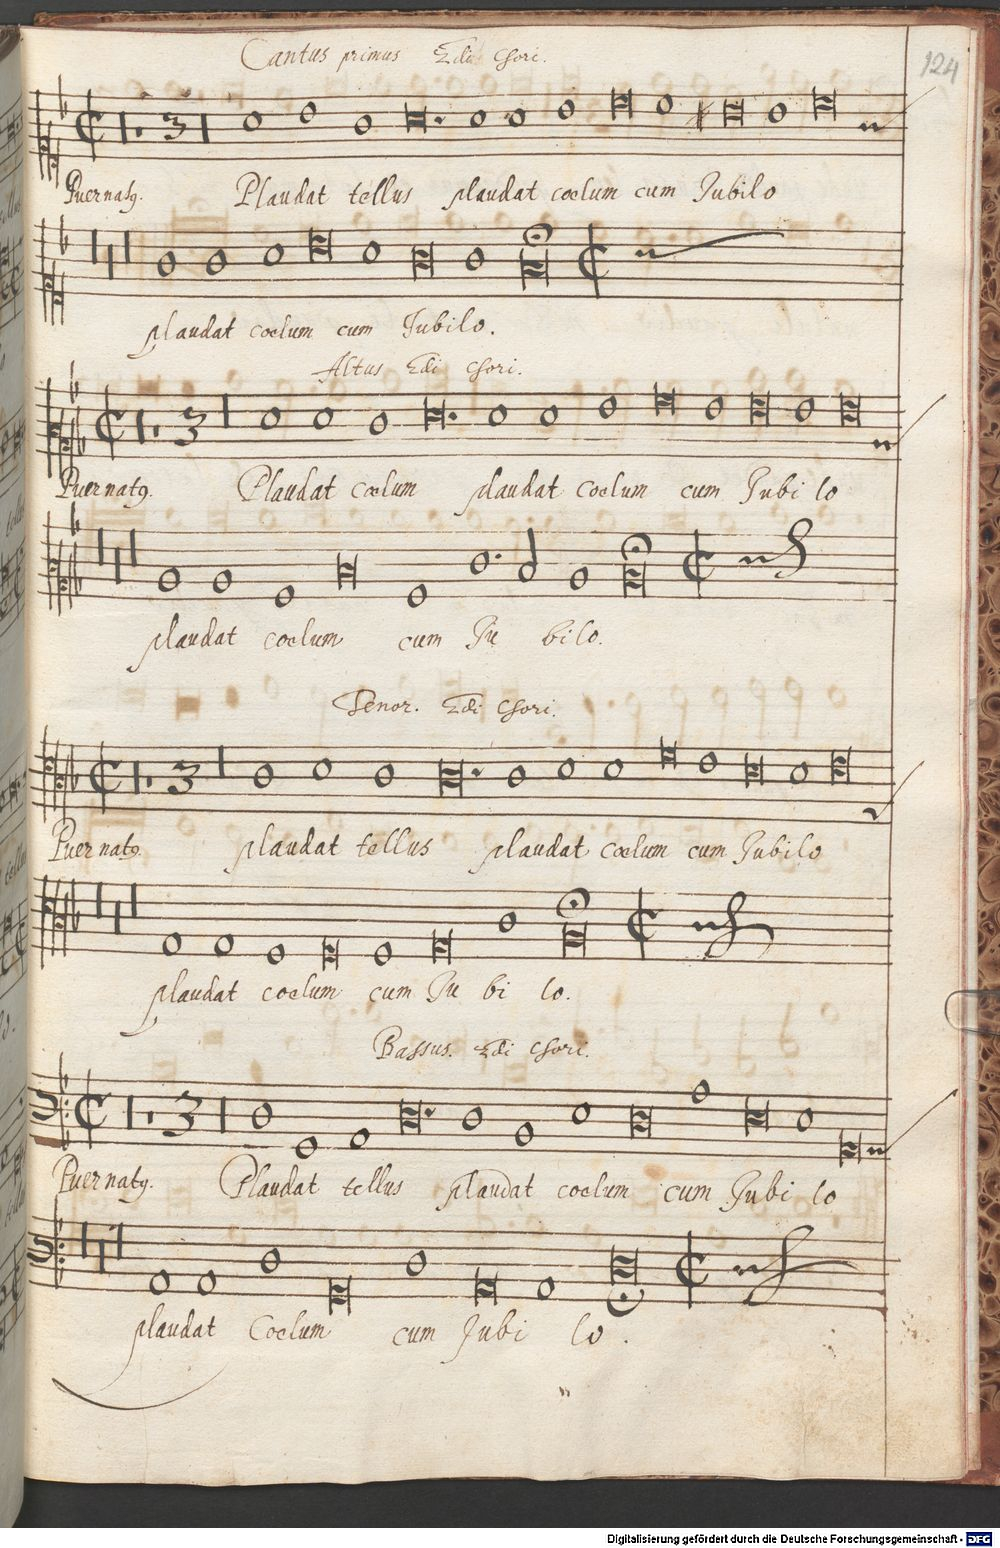 Cantus primus 2di Chori.
124
3
Puer natꝯ. Plaudat tellus plaudat coelum cum Iubilo
plaudat coelum cum Iubilo.
Altus 2di Chori.
3
Puer natꝯ. Plaudat coelum plaudat coelum cum Iubilo
plaudat coelum cum Iubilo.
Tenor. 2di Chori.
3
Puer natꝯ. plaudat tellus plaudat coelum cum Iubilo
plaudat coelum cum Iubilo.
Bassus. 2di Chori.
3
Puer natꝯ. Plaudat tellus plaudat coelum cum Iubilo
plaudat Coelum cum Iubilo.
Digitalisierung gefördert durch die Deutsche Forschungsgemeinschaft - DFG